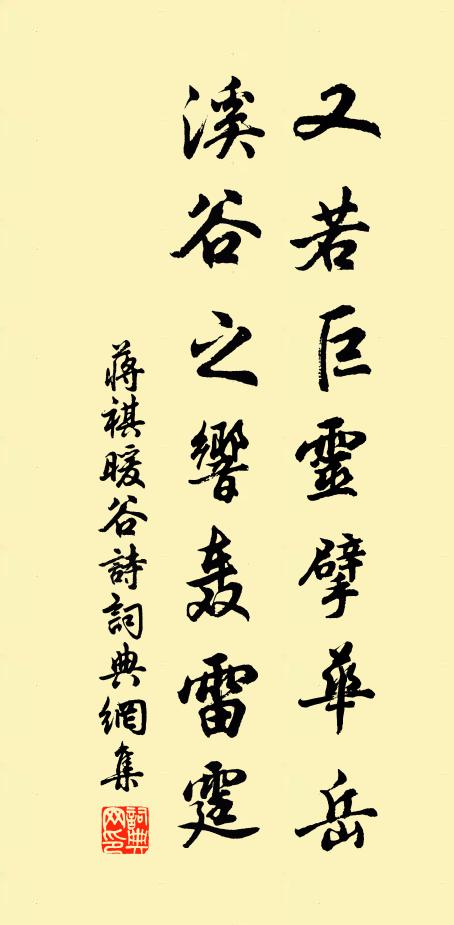 又若巨靈擘華岳
溪谷之響轰雷霆
蔣祺暖谷詩詞典網集
詞典
网印